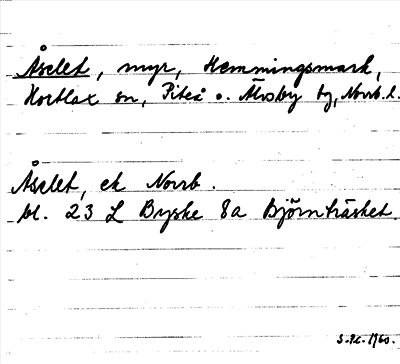 Åselet, myr, Hemmingsmark,
Hortlax sn, Piteå o. Älvsby tg, Norrb. l.
Åselet, ek Norrb.
bl. 23 L Byske 8a Björnträsket.